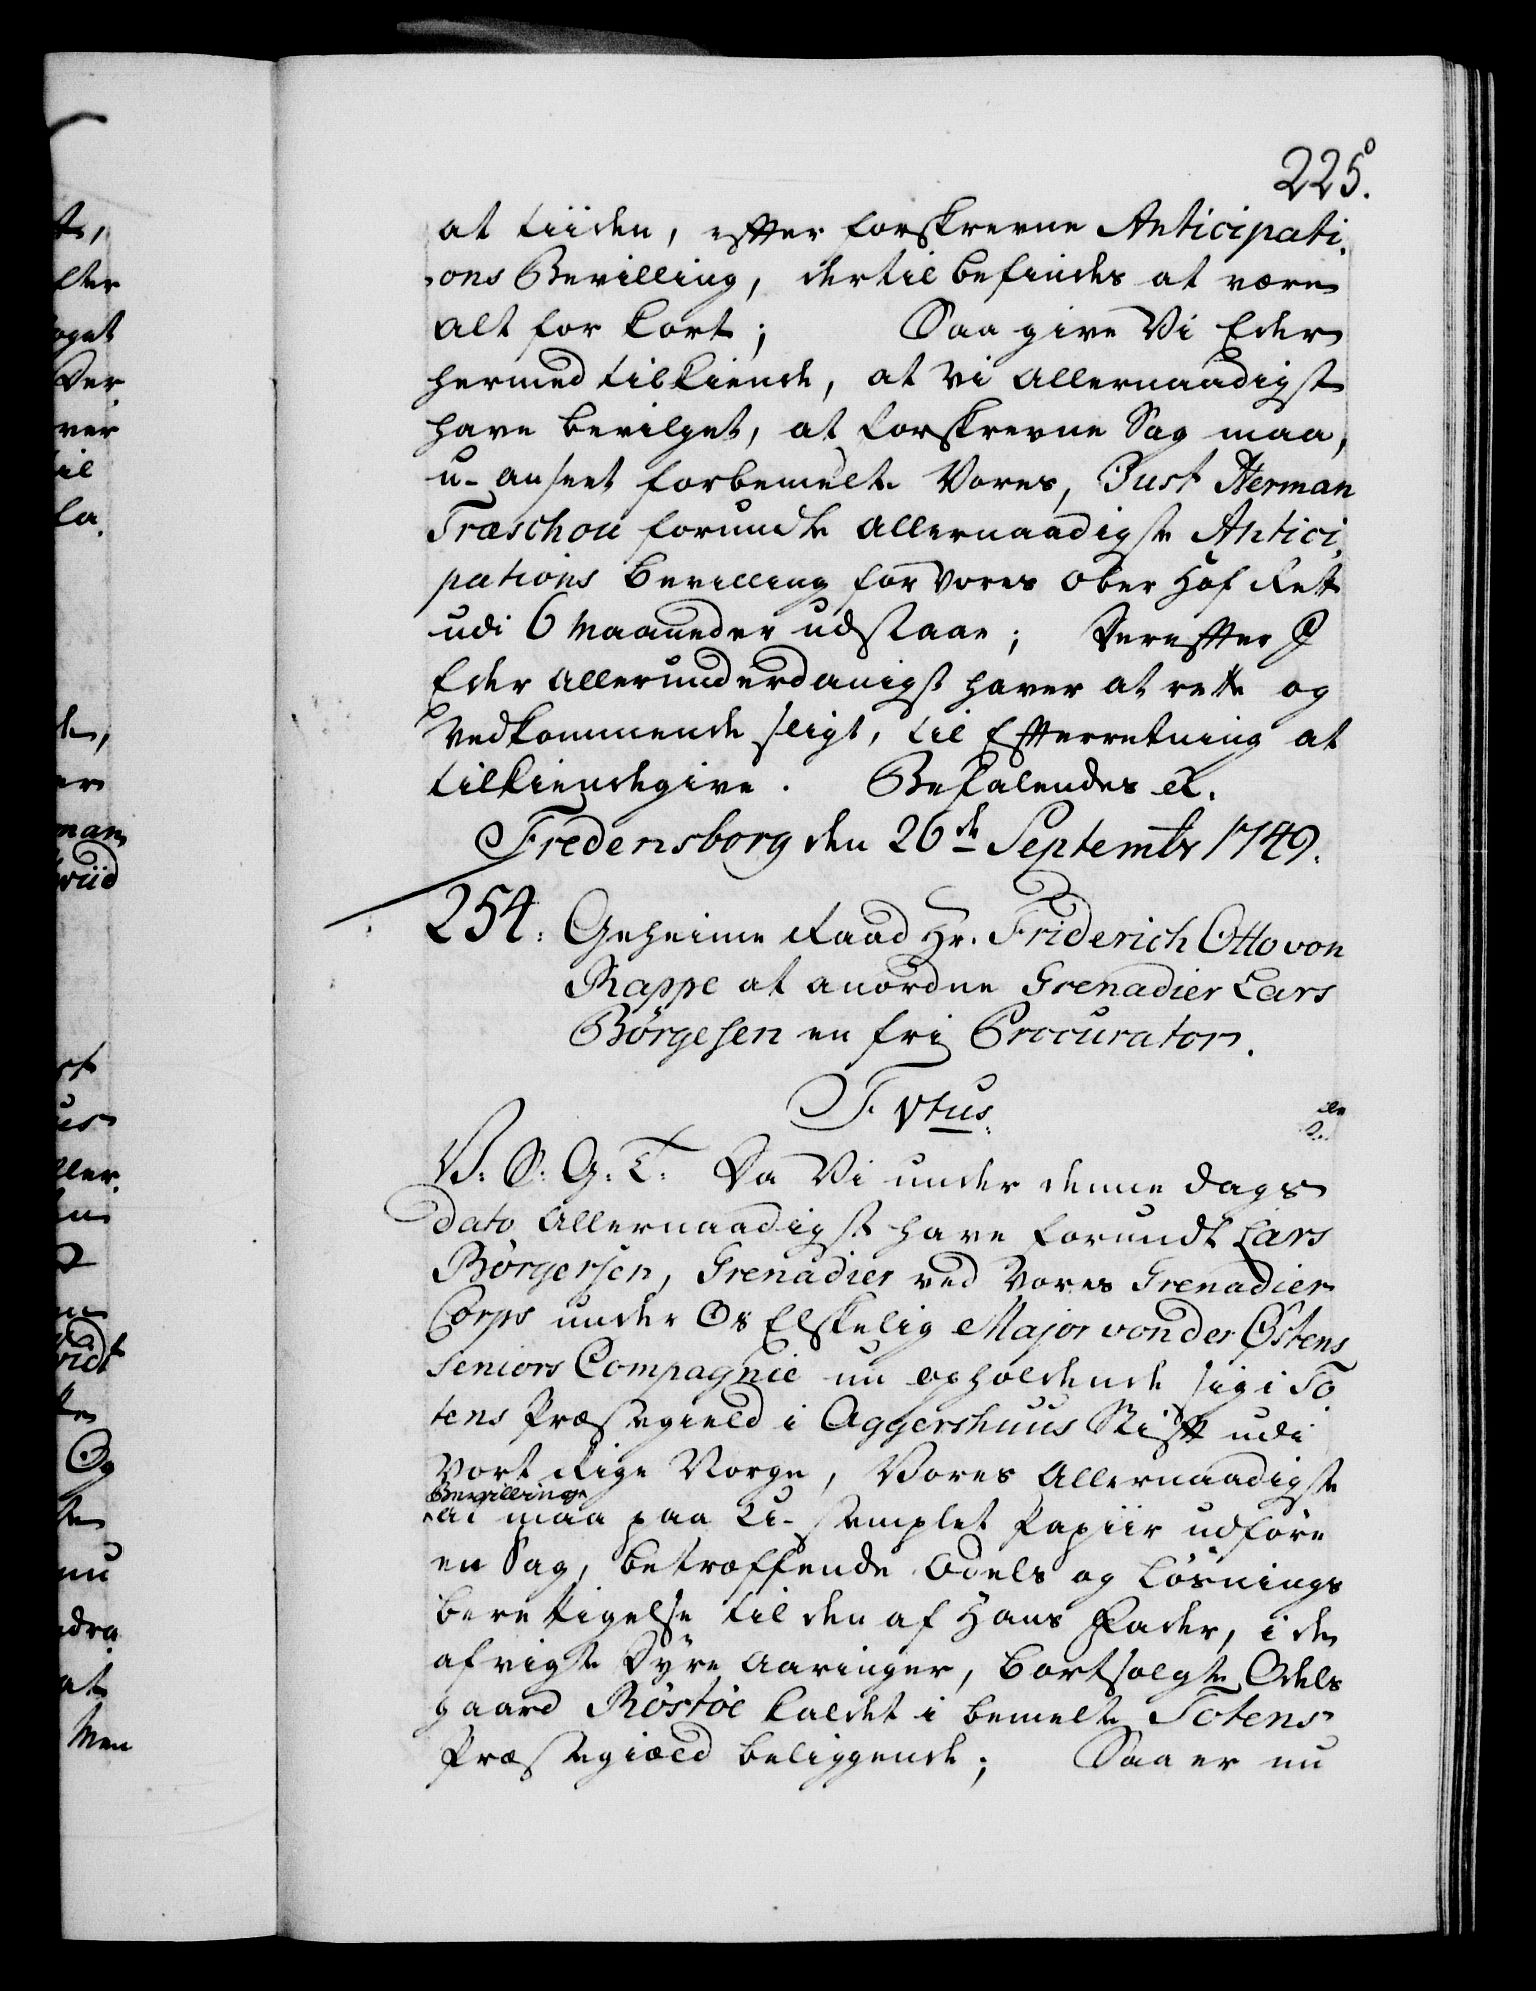 225.
at tiiden, efter forskrevne Anticipati-
ons Bevilling, dertil befindes at være
alt for kort; Saa give Vi Eder
hermed tilkiende, at vi allernaadigst
have bevilget, at forskrevne Sag maa,
u-anseet forbemelte Vores, Just Herman
Træschou forundte allernaadigste Antici-
pations bevilling for Vores Ober Hof Rett
udi 6 Maaneder udstaae; Derefter I
Eder allerunderdanigst haver at rette og
Vedkommende sligt, til Efterretning at
tilkiendegive. Befalendes etc.
Fredensborg den 26de Septembr 1749.
254. Geheime Raad Hr. Friderich Otto von
Rappe at anordne Grenadier Lars
Børgesen en fri Procurator.
F. Vtus.
V. S. G. T. Da Vi under denne Dags
dato allernaadigst have forundt Lars
Børgersen, Grenadier ved Vores Grenadier
Corps under Os Elskelig Major von der Østens
Seniors Compagnie nu opholdende sig i To-
tens Præstegield i Aggershuus Stift udi
Vort Rige Norge, Vores allernaadigste
Bevilling
at maa paa U-stemplet Papiir udføre
en Sag, betræffende Odels og Løsnings
berettigelse til den af Hans Fader, i de
afvigte Dyre Aaringer, bortsolgte Odels
gaard Røstøe kaldet i bemelte Totens
Præstegiæld beliggende; Saa er nu